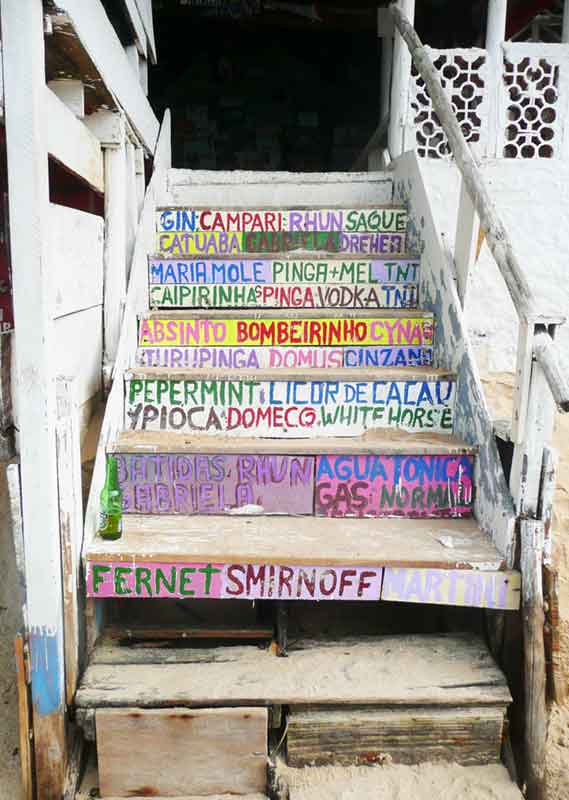 GIN CAMPARI RHUN SAQUE
CATUABA GABRIELA DREHER
MARIA MOLE PINGA+MEL TNT
CAIPIRINHAS PINGA VODKA TNT
ABSINTO BOMBEIRINHO CYNAS
DOMUS CINZANO
PEPERMINT LICOR DE CACAU
YPIOCA DOMECQ WHITE HORSE
BATIDAS RHUN AGUA TONICA
GABRIELA GAS NORMAL
FERNET SMIRNOFF MARTINI